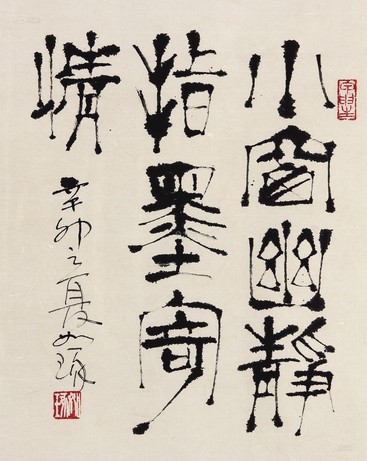 小窗幽静
指墨寄
情
辛卯之夏如琢